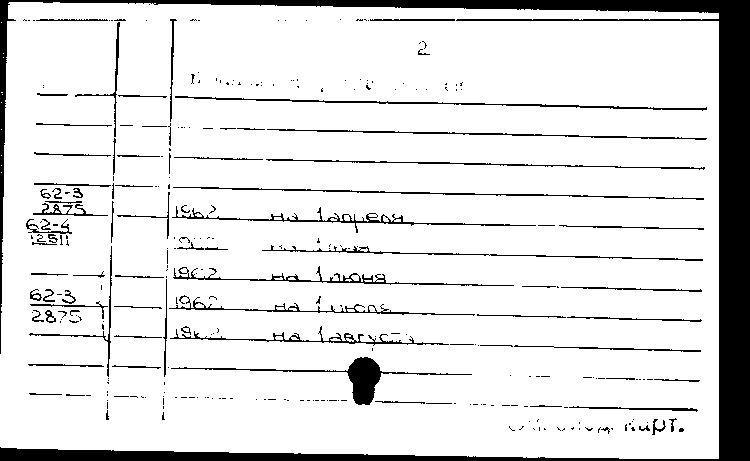 2
62-3
2875 1962 на 1 апреля
62-4
12511 1962 на 1 мая
1962 на 1 июня
62-3
2875 1962 на 1 июля
1962 на 1 августа
карт.